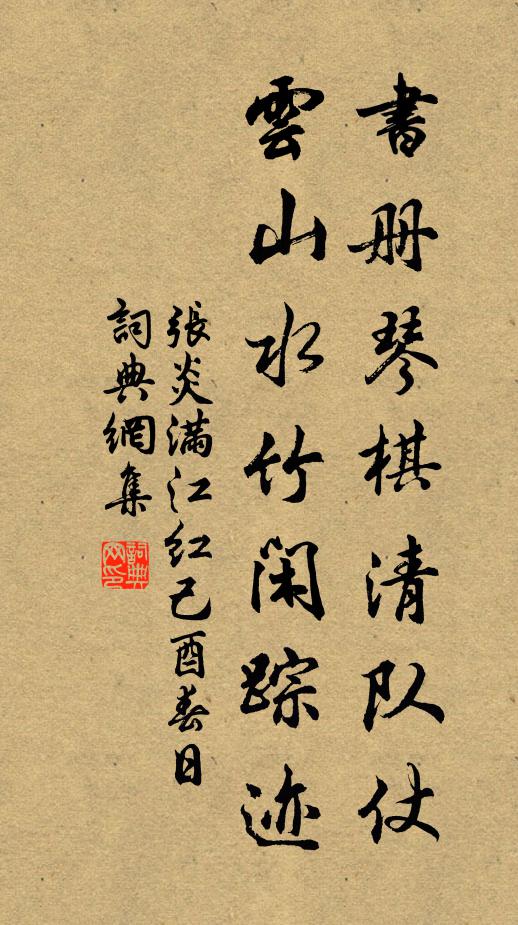 書册琴棋清队仗
雲山水竹闲踪迹
張炎满江红己酉春日
詞典網集
詞典網印